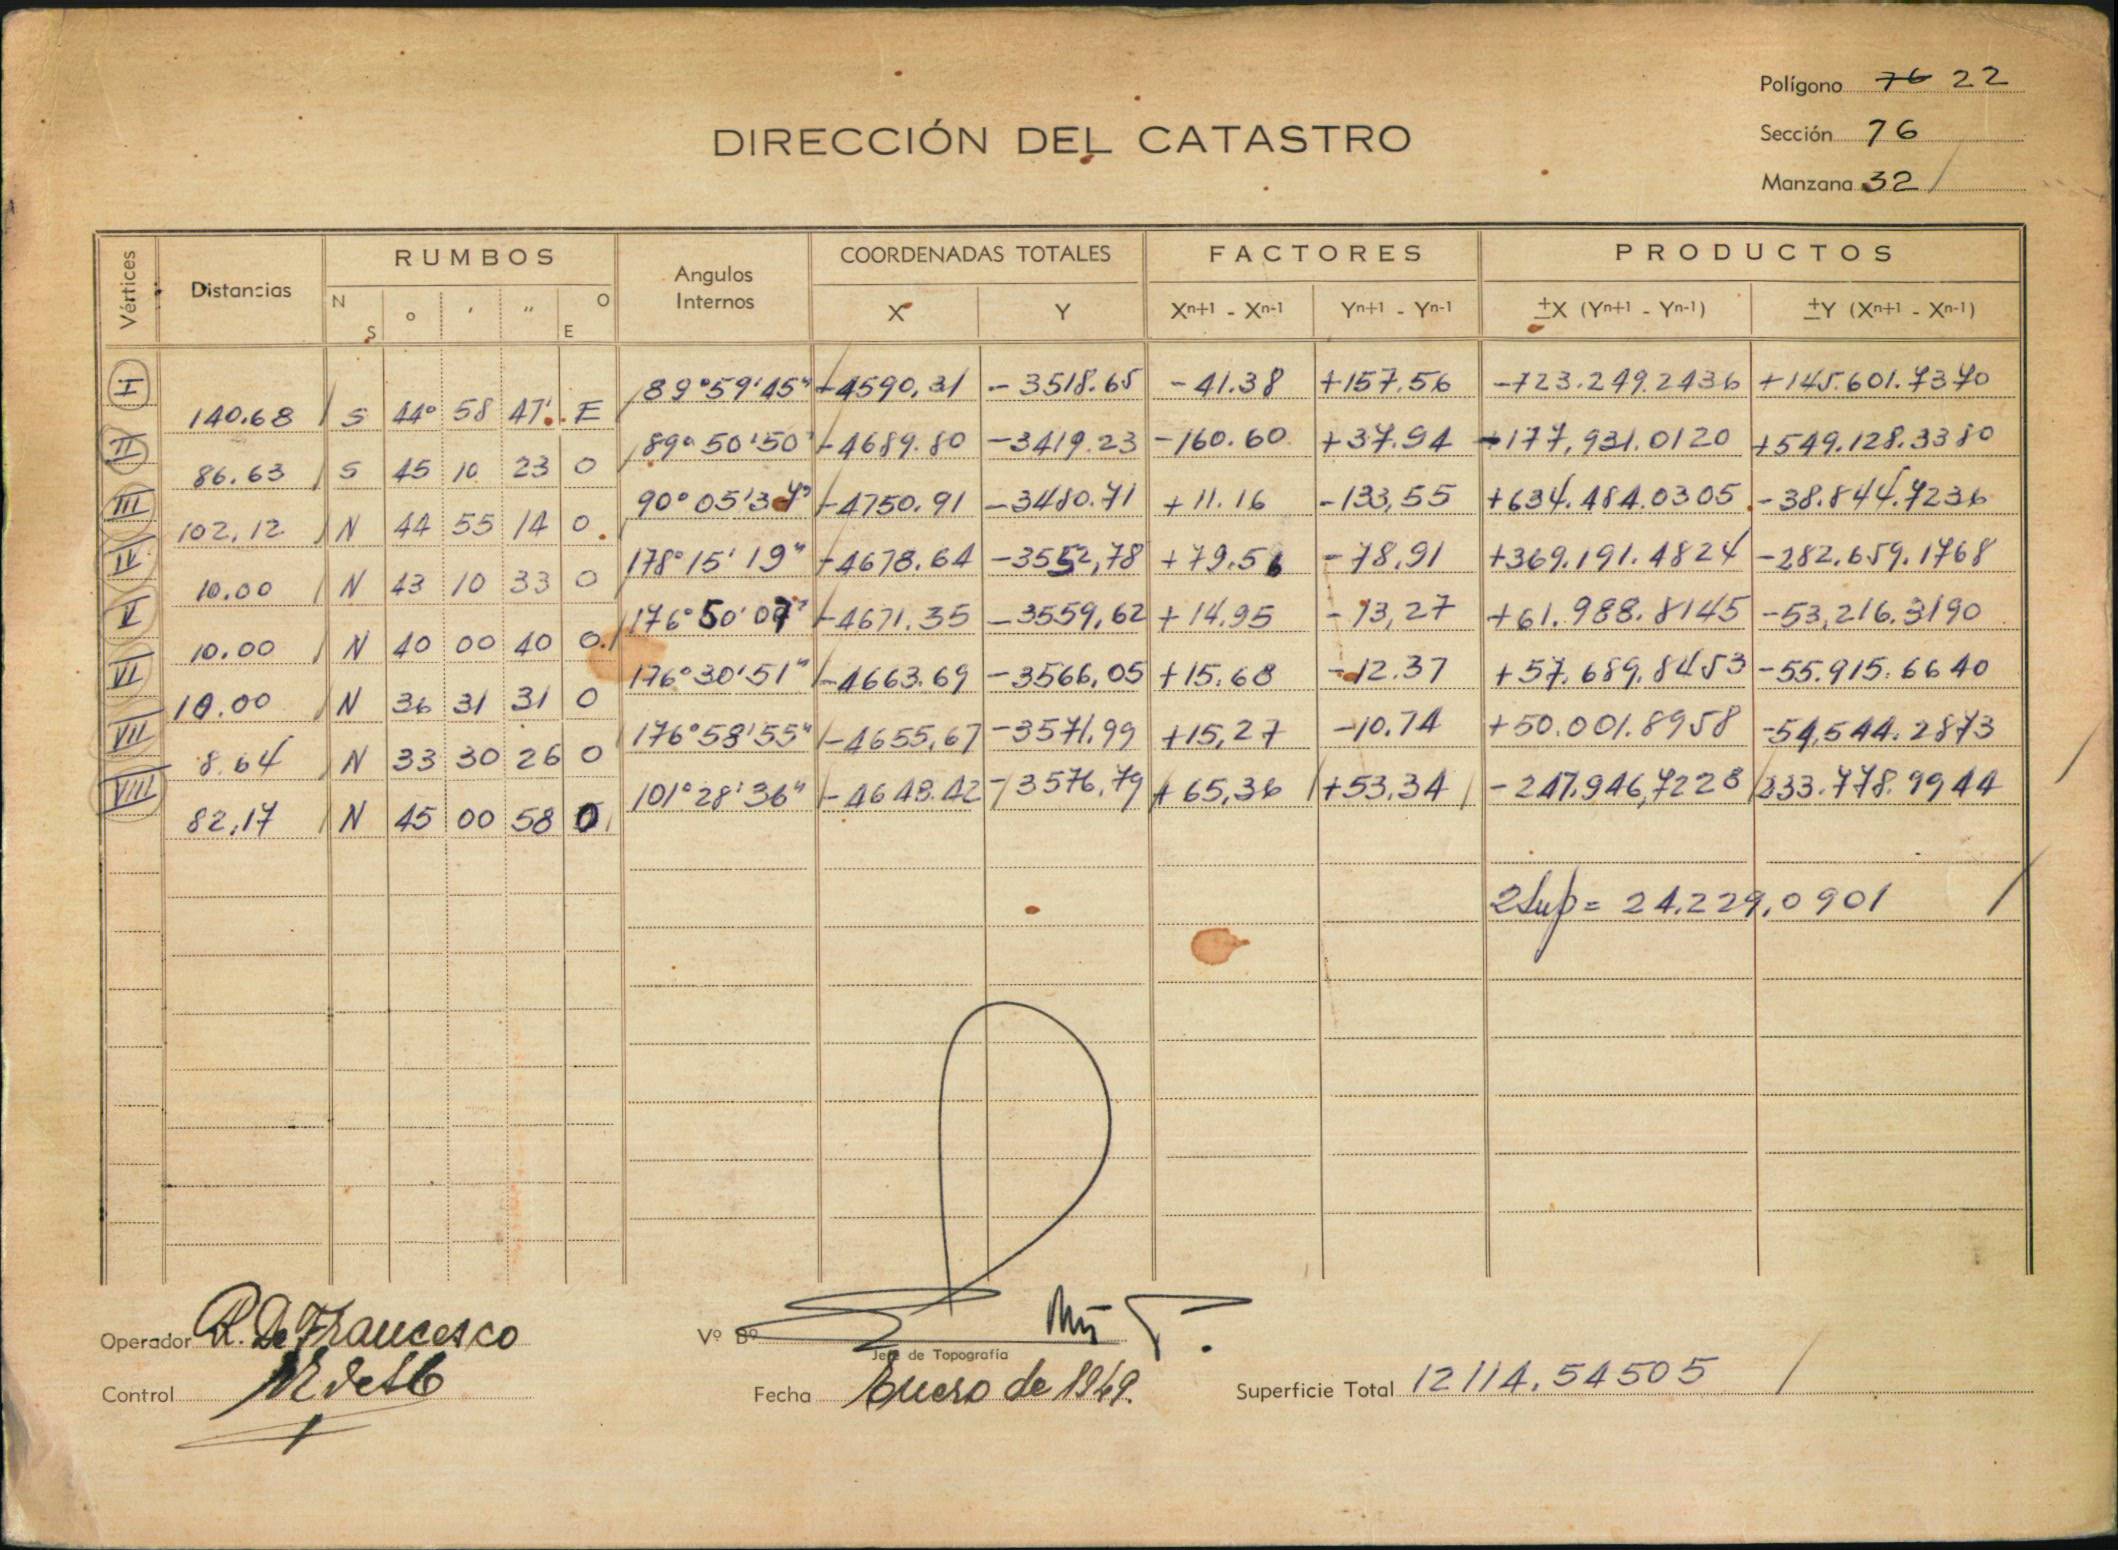 Polígono 76 22
DIRECCIÓN DEL CATASTRO
Sección 76
Manzana 32 /
Vértices Distancias RUMBOS Angulos Internos COORDENADAS TOTALES FACTORES PRODUCTOS
N S ° ' " O E X Y Xn+1 - Xn-1 Yn+1 - Yn-1 ±X (Yn+1 - Yn-1) ±Y (Xn+1 - Xn-1)
I 89°59'45" -4590,31 -3518.65 -41.38 +157.56 -723.249.2436 +145.601.7370
140.68 S 44° 58 47' E
II 89° 50' 50" -4689.80 -3419.23 -160.60 +37.94 -177,931.0120 +549.128.3380
86.63 S 45 10 23 O
III 90° 05' -4750.91 -3480.71 +11.16 -133,55 +634.484.0305 -38.844.7236
102,12 N 44 55 14 O
IV 178° 15' 19" -4678.64 -3552,78 +79.56 -78,91 +369.191.4824 -282.659.1768
10.00 N 43 10 33 O
V 176° 50' 07" -4671.35 -3559,62 +14.95 -13,27 +61.988.8145 -53,216.3190
10.00 N 40 00 40 O
VI 176°30'51" -4663.69 -3566,05 +15.68 -12.37 +57.689.8453 -55.915.6640
10.00 N 36 31 31 O
VII 176°58'55" -4655,67 -3571,99 +15,27 -10.74 +50.001.8958 -54,544.2873
8.64 N 33 30 26 O
VIII 101°28'36" -4648.42 -3576,79 +65,36 +53,34 -247.946,7228 233.778.9944
82,17 N 45 00 58 O
2Sup = 24.229,0901 /
Operador R. De Francesco
Vº Bº
Jefe de Topografía
Control
Fecha Enero de 1949.
Superficie Total 12114.54505 /